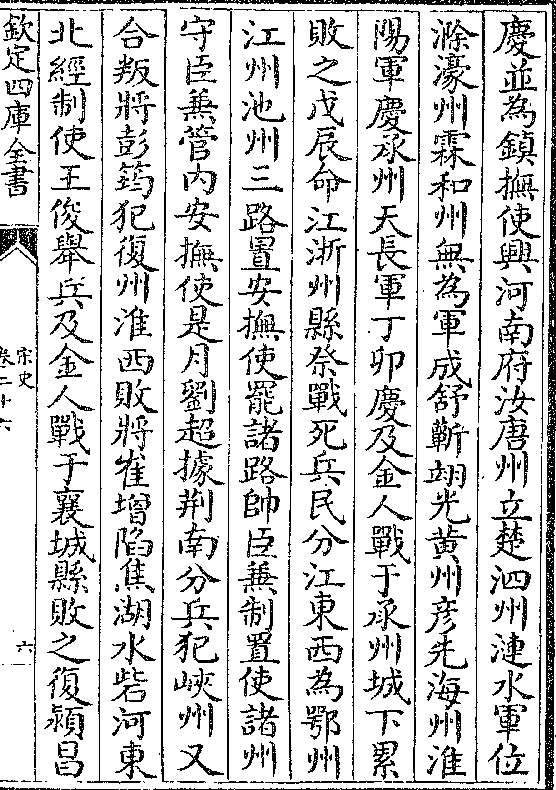 慶並為鎮撫使興河南府汝唐州立楚泗州漣水軍位
滁濠州霖和州無為軍成舒蘄翊光黄州彦先海州淮
陽軍慶承州天長軍丁卯慶及金人戰于承州城下累
敗之戊辰命江浙州縣祭戰死兵民分江東西為鄂州
江州池州三路置安撫使罷諸路帥臣兼制置使諸州
守臣兼管内安撫使是月劉超據荆南分兵犯峽州又
合叛將彭筠犯復州淮西敗將崔增陷焦湖水砦河東
北經制使王俊舉兵及金人戰于襄城縣敗之復潁昌
欽定四庫全書
宋史
卷二十六
六